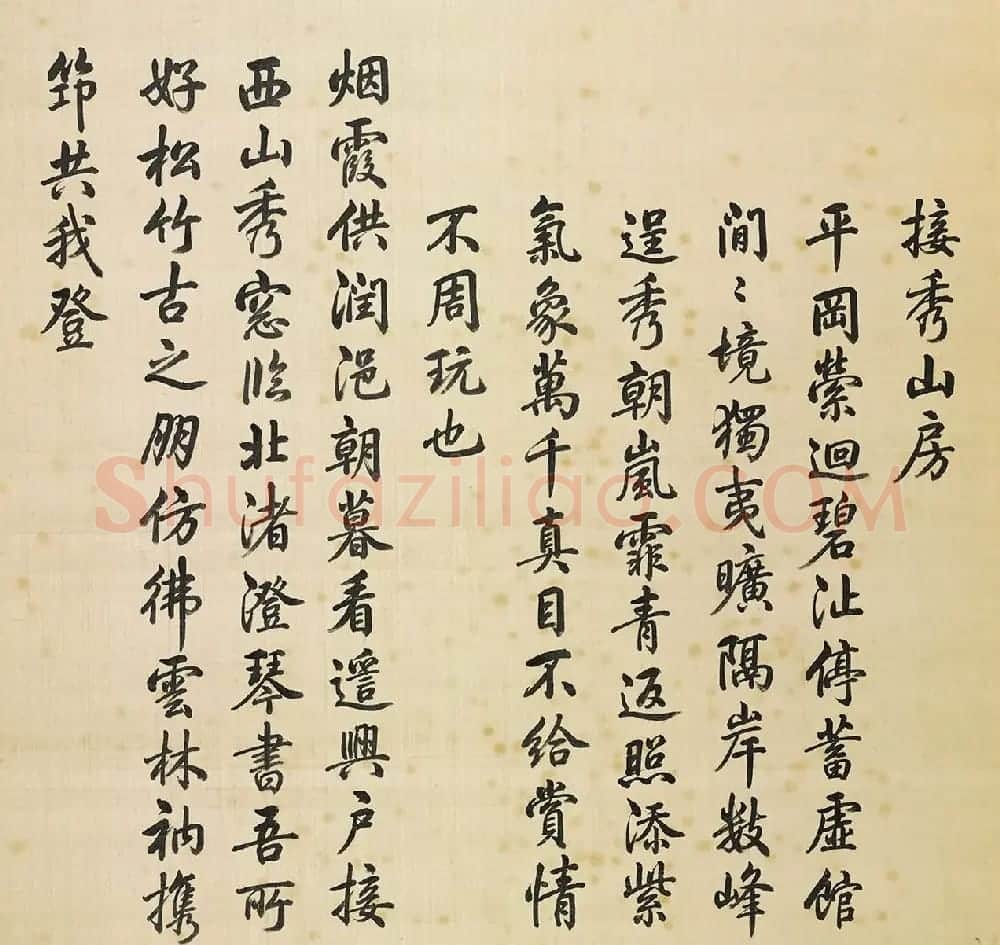 接秀山房
平岡縈迴碧沚停蓄虛館
閒〻境獨夷曠隔岸數峰
逞秀朝嵐霏青返照添紫
氣象萬千真目不給賞情
不周玩也
烟霞供潤浥朝暮看遥興户接
西山秀窓臨北渚澄琴書吾所
好松竹古之朋仿彿雲林衲攜
筇共我登
Shufaziliao.COM